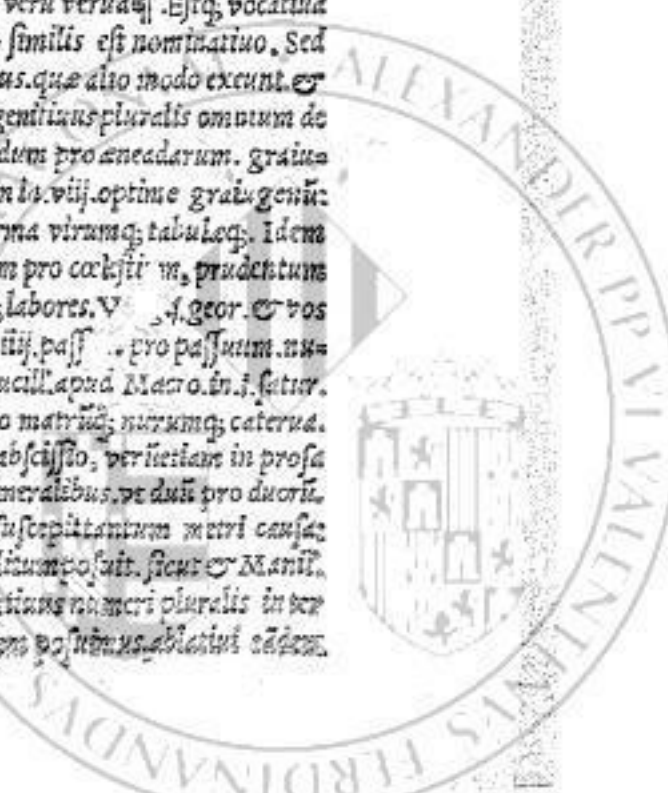 veru veruaq; .Estq; vocatiua
similis est nominatiuo. Sed
us.quæ alio modo exeunt.&
genitiuus pluralis omnium de
dum pro æneadarum. graiu=
m in.viij.optime graiugenũ:
rma virumq; tabulæq;. Idem
m pro cœlesti m, prudentum
labores.V .4.geor.& vos
iiij.pass . pro passuum.nu=
ncill.apud Macro.in.j.satur.
o matrũq; nurumq; caterua.
abscissio, verũetiam in prosa
meralibus.vt duũ pro duorũ.
suscepit tantum metri causa:
litum posuit. sicut & Manil.
tiuus numeri pluralis in
em posuimus.ablatiui eãdem
ALEXANDER PP VI VALENTINVS FERDINANDVS